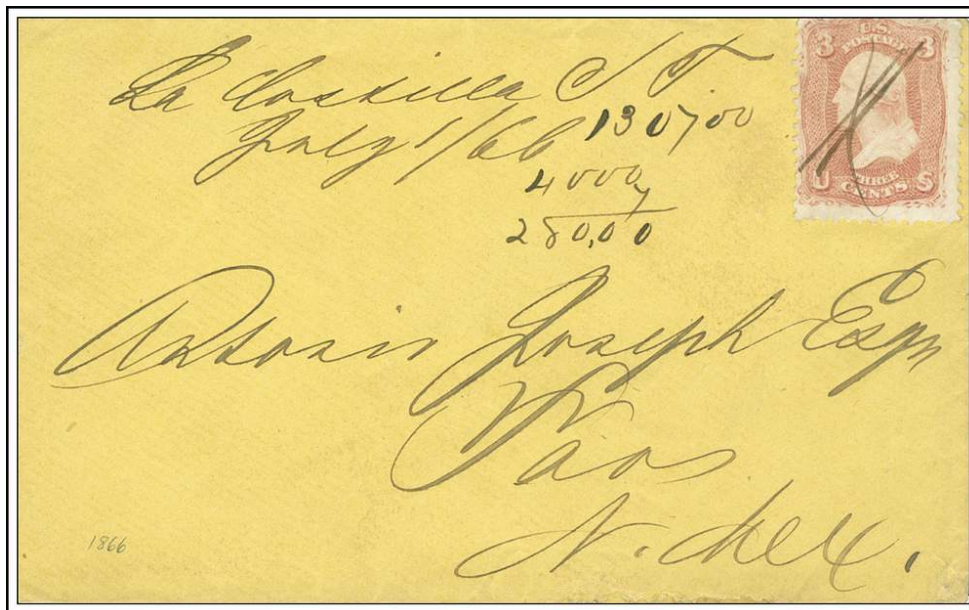 La Costilla C T
July 1/66
130700
4000
280,00
3 U.S. POSTAGE 3
U THREE CENTS S
Antonio Joseph Esqr
Taos
N. Mex.
1866